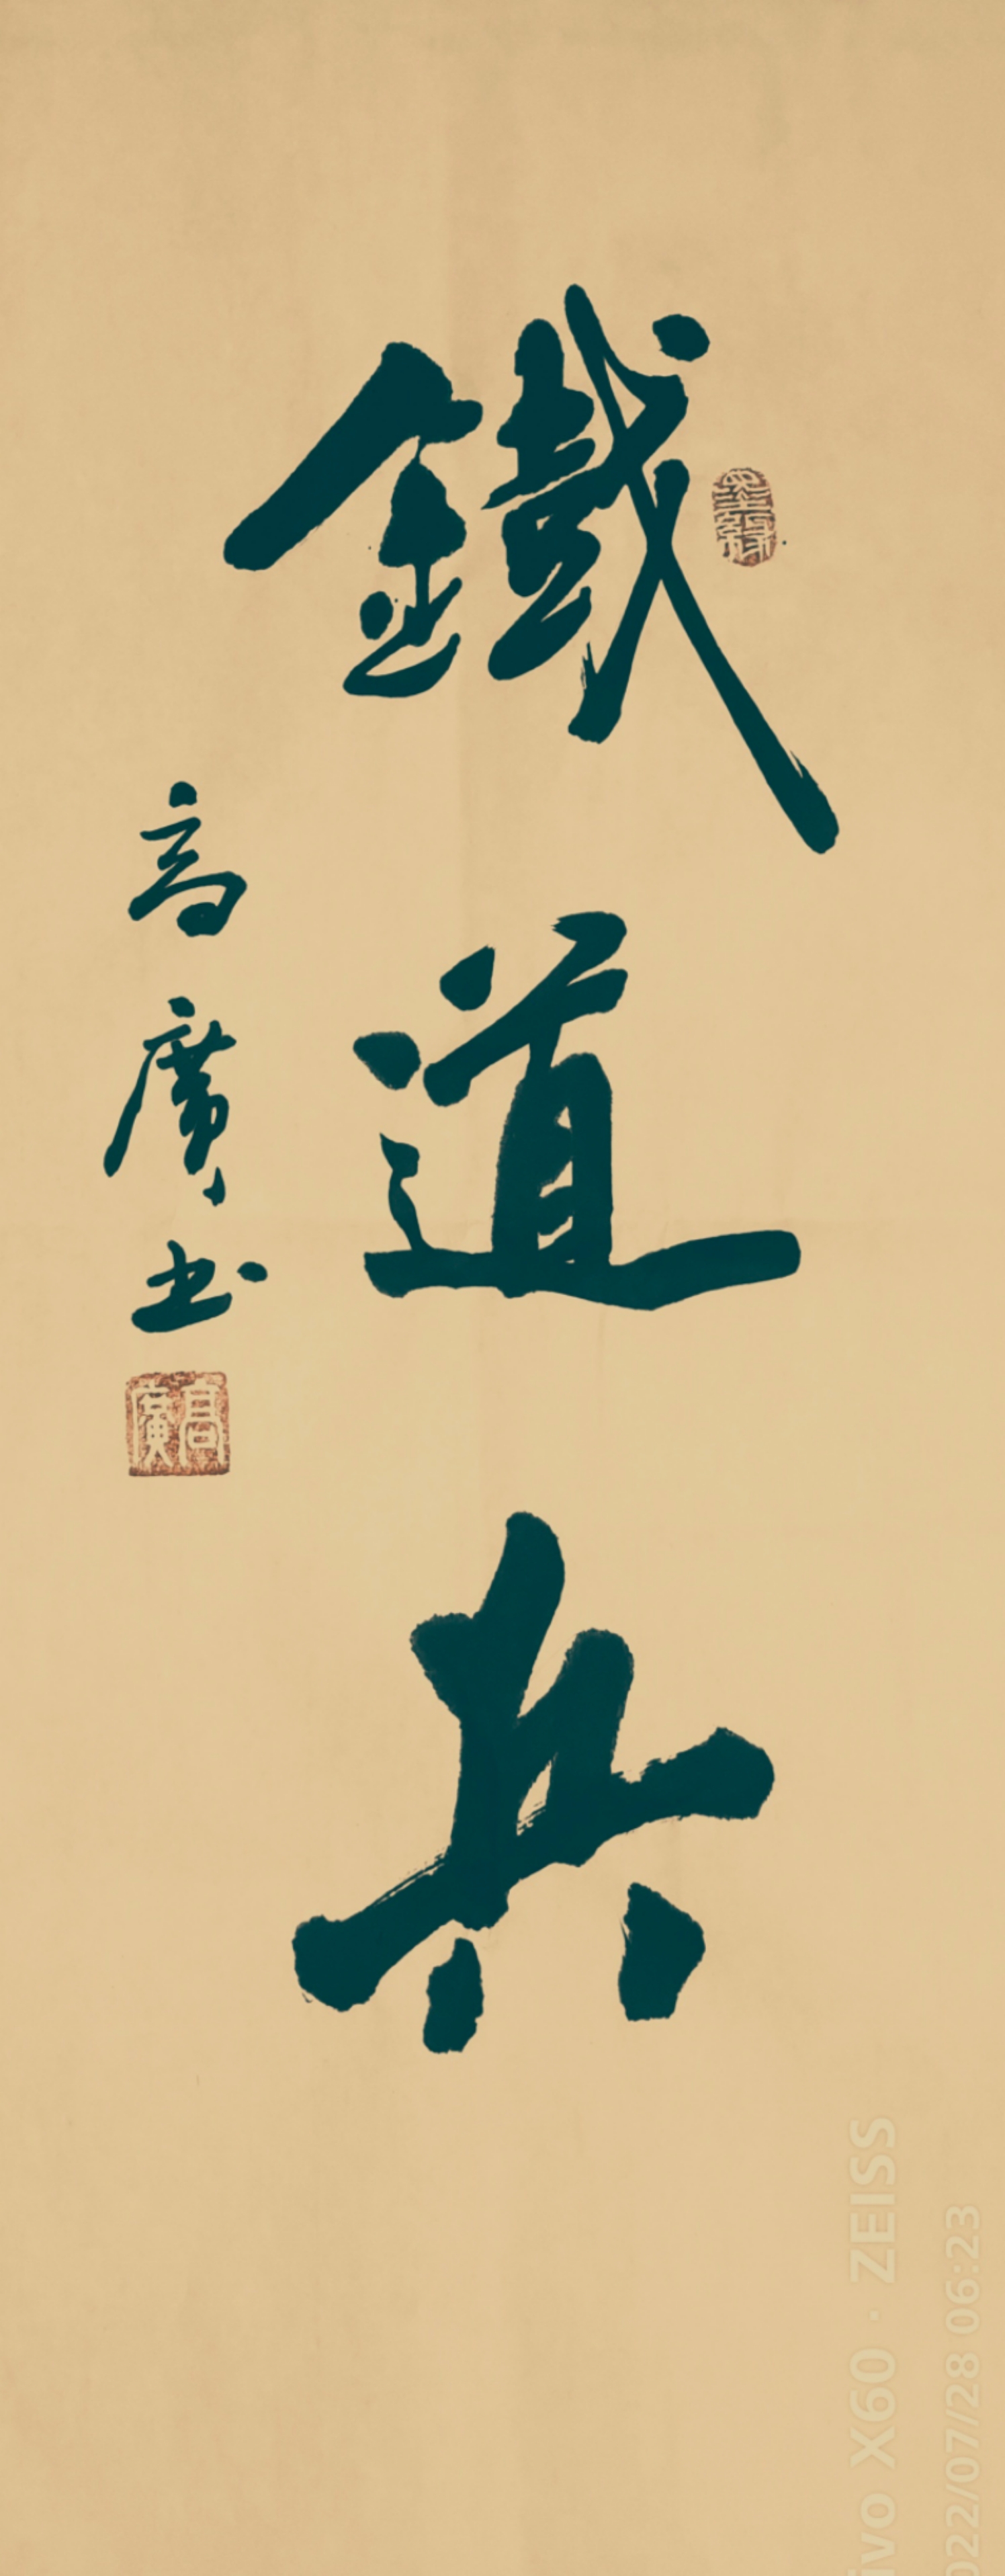 鐵道兵
高廣书
高廣
ivo X60 · ZEISS
022/07/28 06:23